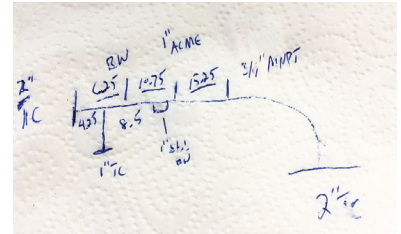 1"
ACME
BW
2"
TC
6.25
10.75
15.25
3/4" MNPT
4.25
8.5
1" TC
1"
BW
2" TC